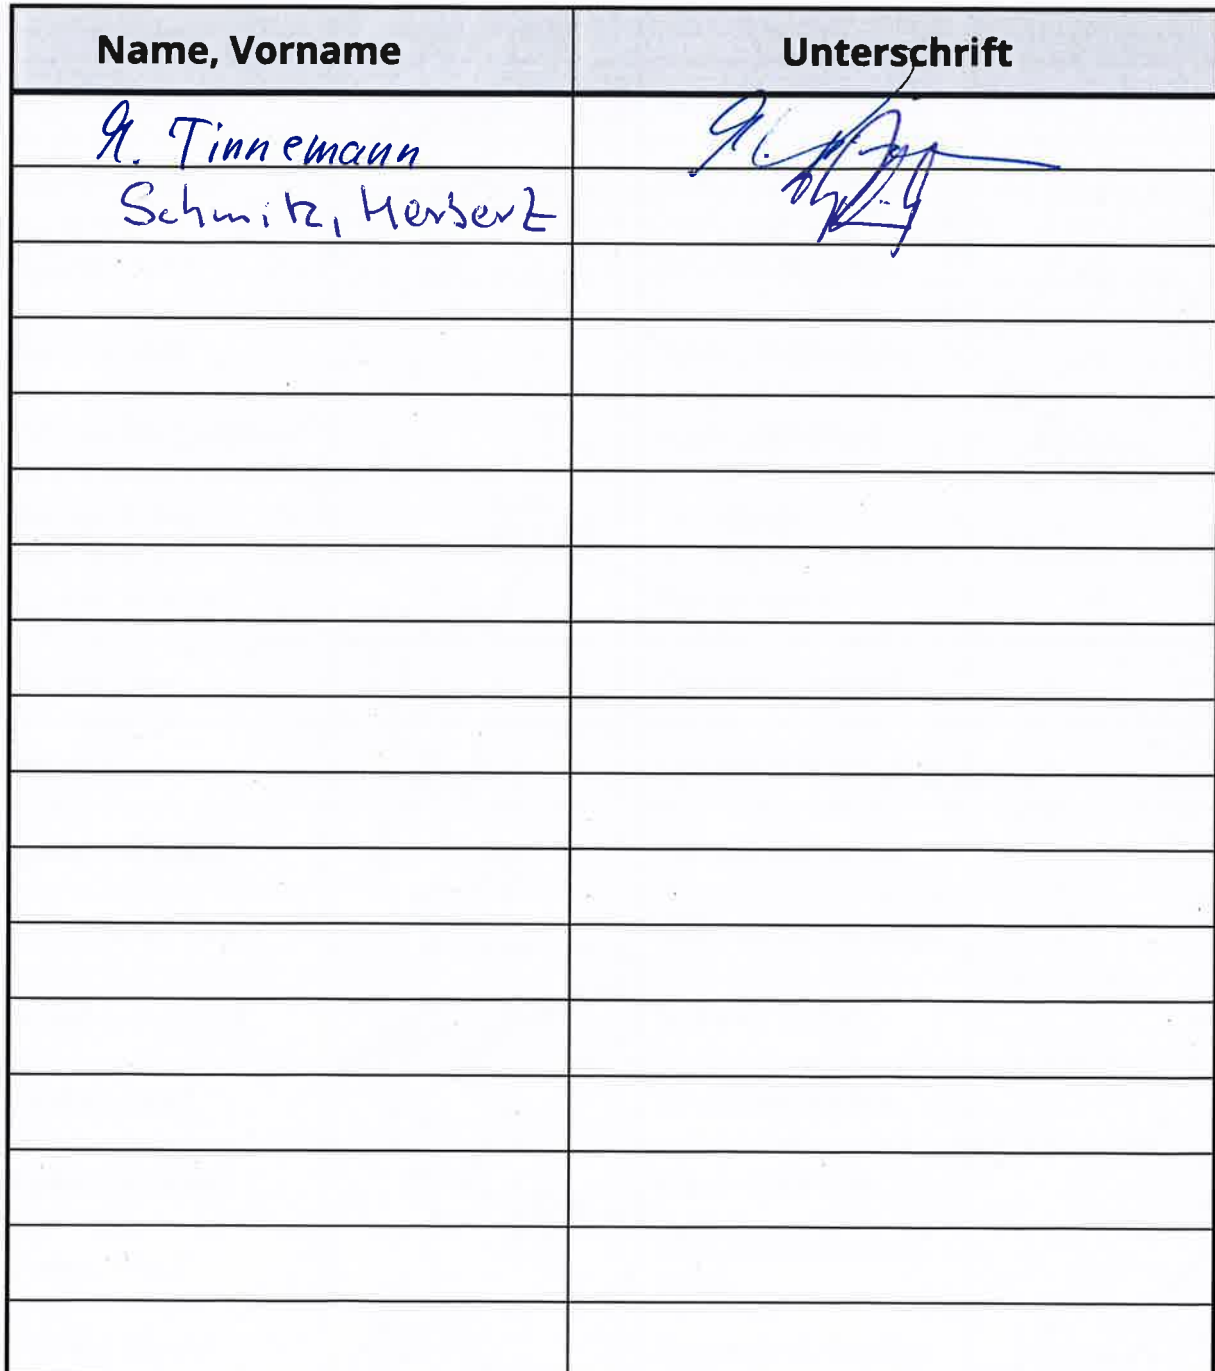 Name, Vorname Unterschrift
Tinnemann
Schmitz, Herbert